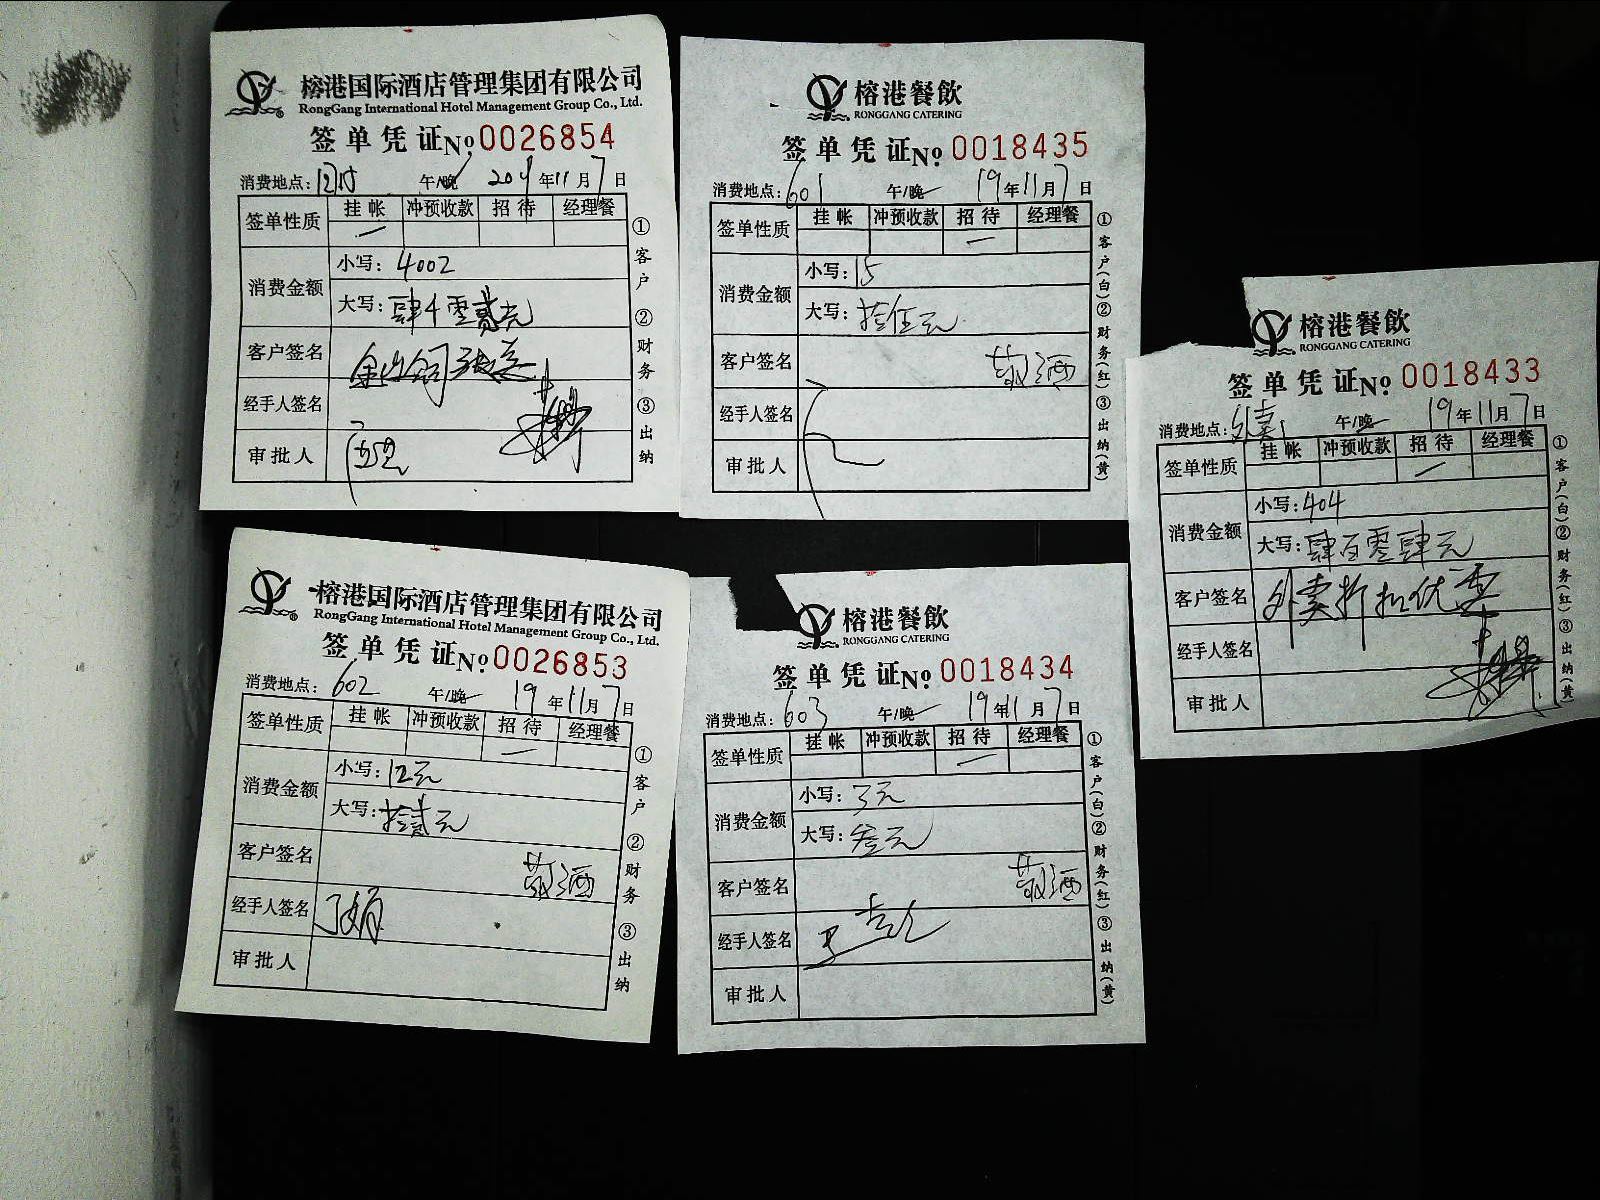 榕港国际酒店管理集团有限公司
RongGang International Hotel Management Group Co., Ltd.
签单凭证No 0026854
消费地点: 午/晚 年11月7日
签单性质 挂帐 冲预收款 招待 经理餐
消费金额
小写: 4002
大写: 肆千零贰元
客户签名
经手人签名
审批人
①客户 ②财务 ③出纳
榕港餐飲
RONGGANG CATERING
签单凭证No 0018435
消费地点: 601 午/晚 19年11月7日
签单性质 挂帐 冲预收款 招待 经理餐
消费金额
小写: 15
大写: 拾伍元
客户签名 敬酒
经手人签名
审批人
①客户(白)②财务(红)③出纳(黄)
榕港餐飲
RONGGANG CATERING
签单凭证No 0018433
消费地点: 外卖 午/晚 19年11月7日
签单性质 挂帐 冲预收款 招待 经理餐
消费金额
小写: 404
大写: 肆百零肆元
客户签名 外卖折扣优惠
经手人签名
审批人
①客户(白)②财务(红)③出纳(黄)
榕港国际酒店管理集团有限公司
RongGang International Hotel Management Group Co., Ltd.
签单凭证No 0026853
消费地点: 602 午/晚 19年11月7日
签单性质 挂帐 冲预收款 招待 经理餐
消费金额
小写: 12元
大写: 拾贰元
客户签名 敬酒
经手人签名
审批人
①客户 ②财务 ③出纳
榕港餐飲
RONGGANG CATERING
签单凭证No 0018434
消费地点: 603 午/晚 19年11月7日
签单性质 挂帐 冲预收款 招待 经理餐
消费金额
小写: 3元
大写: 叁元
客户签名 敬酒
经手人签名
审批人
①客户(白)②财务(红)③出纳(黄)